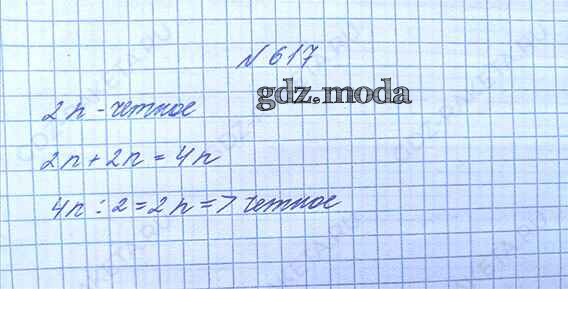 N 617
gdz.moda
2n - четное
2n + 2n = 4n
4n : 2 = 2n => четное